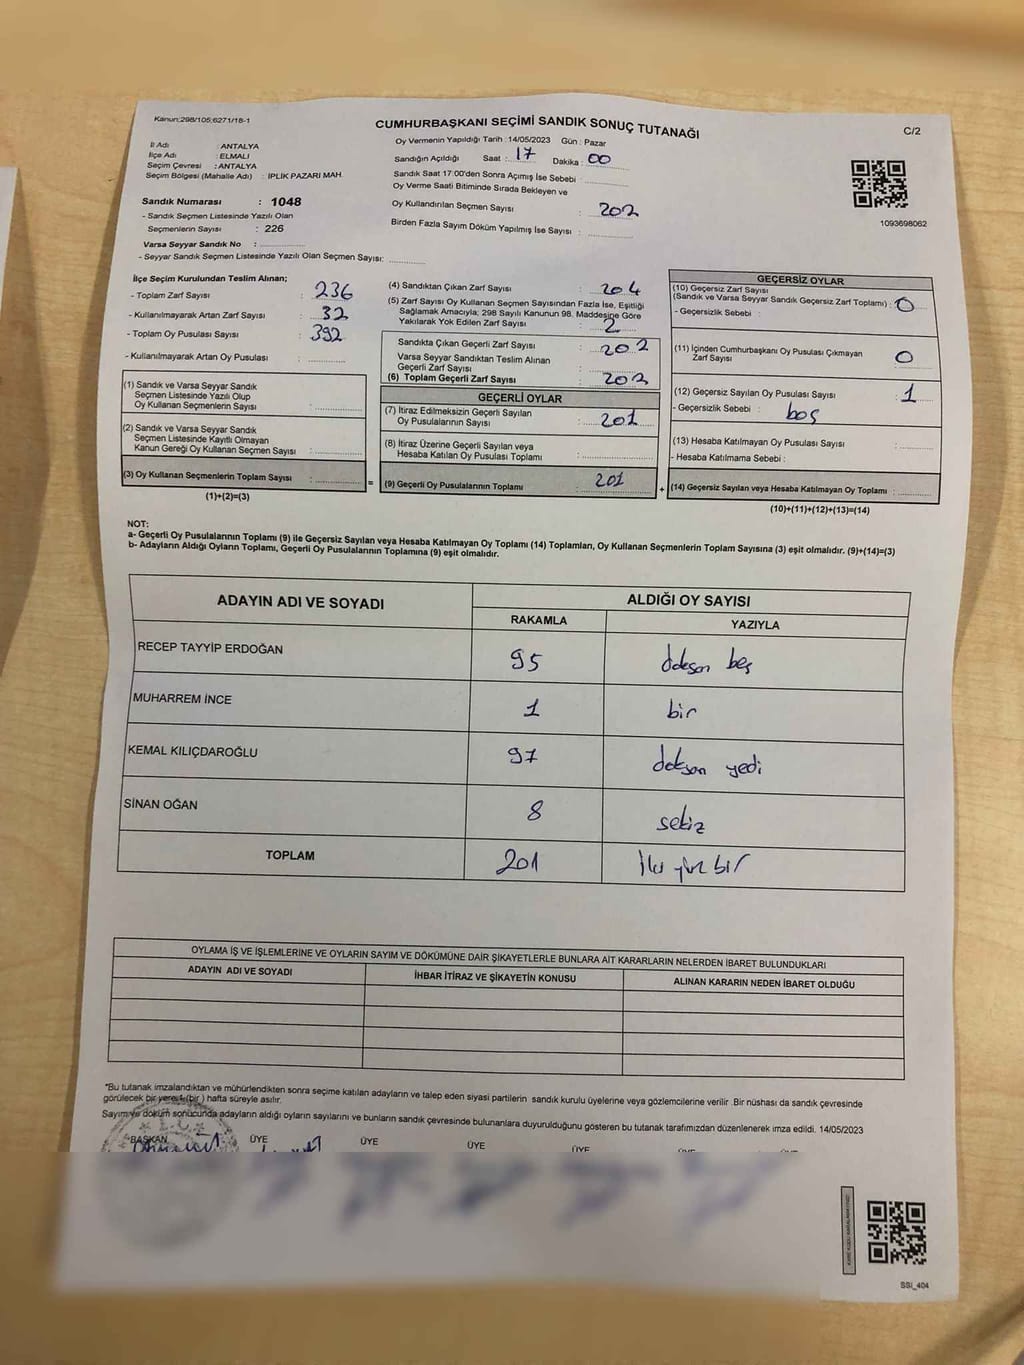 Kanun:298/105;6271/18-1
CUMHURBAŞKANI SEÇİMİ SANDIK SONUÇ TUTANAĞI
C/2
İl Adı : ANTALYA
İlçe Adı : ELMALI
Seçim Çevresi : ANTALYA
Seçim Bölgesi (Mahalle Adı) : İPLİK PAZARI MAH.
Sandık Numarası : 1048
- Sandık Seçmen Listesinde Yazılı Olan
Seçmenlerin Sayısı : 226
Varsa Seyyar Sandık No :
- Seyyar Sandık Seçmen Listesinde Yazılı Olan Seçmen Sayısı:
Oy Vermenin Yapıldığı Tarih : 14/05/2023 Gün : Pazar
Sandığın Açıldığı Saat : 17 Dakika : 00
Sandık Saat 17:00'den Sonra Açımış İse Sebebi :
Oy Verme Saati Bitiminde Sırada Bekleyen ve
Oy Kullandırılan Seçmen Sayısı : 202
Birden Fazla Sayım Döküm Yapılmış İse Sayısı :
1093698062
İlçe Seçim Kurulundan Teslim Alınan;
- Toplam Zarf Sayısı : 236
- Kullanılmayarak Artan Zarf Sayısı : 32
- Toplam Oy Pusulası Sayısı : 392
- Kullanılmayarak Artan Oy Pusulası :
(1) Sandık ve Varsa Seyyar Sandık
Seçmen Listesinde Yazılı Olup
Oy Kullanan Seçmenlerin Sayısı :
(2) Sandık ve Varsa Seyyar Sandık
Seçmen Listesinde Kayıtlı Olmayan
Kanun Gereği Oy Kullanan Seçmen Sayısı :
(3) Oy Kullanan Seçmenlerin Toplam Sayısı :
(1)+(2)=(3)
(4) Sandıktan Çıkan Zarf Sayısı : 204
(5) Zarf Sayısı Oy Kullanan Seçmen Sayısından Fazla İse, Eşitliği
Sağlamak Amacıyla; 298 Sayılı Kanunun 98. Maddesine Göre
Yakılarak Yok Edilen Zarf Sayısı : 2
Sandıkta Çıkan Geçerli Zarf Sayısı : 202
Varsa Seyyar Sandıktan Teslim Alınan
Geçerli Zarf Sayısı :
(6) Toplam Geçerli Zarf Sayısı : 202
GEÇERLİ OYLAR
(7) İtiraz Edilmeksizin Geçerli Sayılan
Oy Pusulalarının Sayısı : 201
(8) İtiraz Üzerine Geçerli Sayılan veya
Hesaba Katılan Oy Pusulası Toplamı :
= (9) Geçerli Oy Pusulalarının Toplamı : 201
GEÇERSİZ OYLAR
(10) Geçersiz Zarf Sayısı
(Sandık ve Varsa Seyyar Sandık Geçersiz Zarf Toplamı) : 0
- Geçersizlik Sebebi :
(11) İçinden Cumhurbaşkanı Oy Pusulası Çıkmayan
Zarf Sayısı : 0
(12) Geçersiz Sayılan Oy Pusulası Sayısı : 1
- Geçersizlik Sebebi : boş
(13) Hesaba Katılmayan Oy Pusulası Sayısı :
- Hesaba Katılmama Sebebi :
+ (14) Geçersiz Sayılan veya Hesaba Katılmayan Oy Toplamı :
(10)+(11)+(12)+(13)=(14)
NOT:
a- Geçerli Oy Pusulalarının Toplamı (9) ile Geçersiz Sayılan veya Hesaba Katılmayan Oy Toplamı (14) Toplamları, Oy Kullanan Seçmenlerin Toplam Sayısına (3) eşit olmalıdır. (9)+(14)=(3)
b- Adayların Aldığı Oyların Toplamı, Geçerli Oy Pusulalarının Toplamına (9) eşit olmalıdır.
ADAYIN ADI VE SOYADI ALDIĞI OY SAYISI
RAKAMLA YAZIYLA
RECEP TAYYİP ERDOĞAN 95 doksan beş
MUHARREM İNCE 1 bir
KEMAL KILIÇDAROĞLU 97 doksan yedi
SİNAN OĞAN 8 sekiz
TOPLAM 201 İki yüz bir
OYLAMA İŞ VE İŞLEMLERİNE VE OYLARIN SAYIM VE DÖKÜMÜNE DAİR ŞİKAYETLERLE BUNLARA AİT KARARLARIN NELERDEN İBARET BULUNDUKLARI
ADAYIN ADI VE SOYADI İHBAR İTİRAZ VE ŞİKAYETİN KONUSU ALINAN KARARIN NEDEN İBARET OLDUĞU
*Bu tutanak imzalandıktan ve mühürlendikten sonra seçime katılan adayların ve talep eden siyasi partilerin sandık kurulu üyelerine veya gözlemcilerine verilir .Bir nüshası da sandık çevresinde
görülecek bir yere 1 (bir ) hafta süreyle asılır.
Sayım ve döküm sonucunda adayların aldığı oyların sayılarını ve bunların sandık çevresinde bulunanlara duyurulduğunu gösteren bu tutanak tarafımızdan düzenlenerek imza edildi. 14/05/2023
BAŞKAN ÜYE ÜYE ÜYE ÜYE
SSİ_404